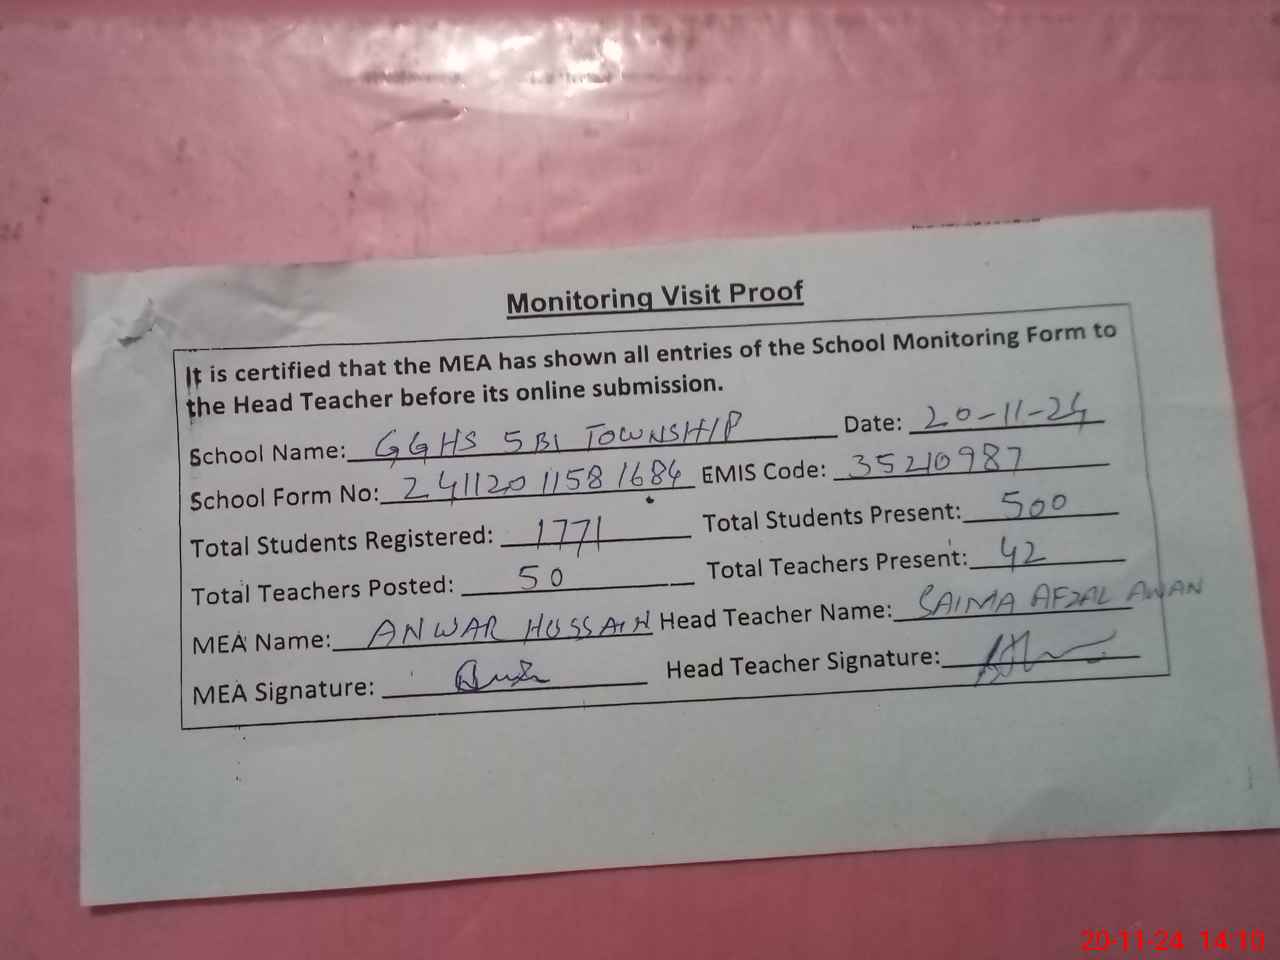 Monitoring Visit Proof
It is certified that the MEA has shown all entries of the School Monitoring Form to
the Head Teacher before its online submission.
School Name: GGHS 5BI TOWNSHIP Date: 20-11-24
School Form No: 2411201158 1684 EMIS Code: 35210987
Total Students Registered: 1771 Total Students Present: 500
Total Teachers Posted: 50 Total Teachers Present: 42
MEA Name: ANWAR HUSSAIN Head Teacher Name: SAIMA AFZAL AWAN
MEA Signature: Head Teacher Signature:
20-11-24 14:10